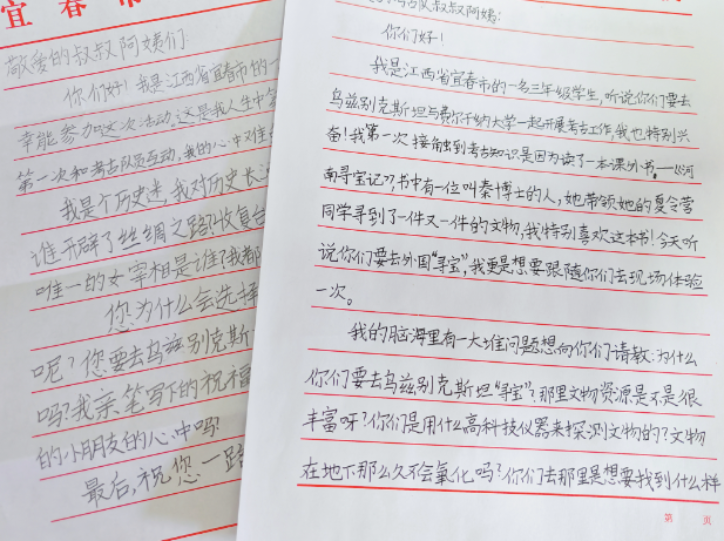 宜春市
敬爱的叔叔阿姨们:
你们好!我是江西省宜春市的一
幸能参加这次活动。这是我人生中
第一次和考古队员互动,我的心中难
我是个历史迷,我对历史长
谁开辟了丝绸之路?收复台
唯一的女宰相是谁?我都
您为什么会选择
呢?您要去乌兹别克斯
吗?我亲笔写下的祝福
的小朋友的心中吗?
最后,祝您一路
叔叔阿姨:
你们好!
我是江西省宜春市的一名三年级学生,听说你们要去
乌兹别克斯坦与费尔干纳大学一起开展考古工作,我也特别兴
奋!我第一次接触到考古知识是因为读了一本课外书——《河
南寻宝记》,书中有一位叫秦博士的人,她带领她的夏令营
同学寻到了一件又一件的文物,我特别喜欢这本书!今天听
说你们要去外国“寻宝”,我更是想要跟随你们去现场体验
一次。
我的脑海里有一大堆问题想向你们请教:为什么
你们要去乌兹别克斯坦“寻宝”?那里文物资源是不是很
丰富呀?你们是用什么高科技仪器来探测文物的?文物
在地下那么久不会氧化吗?你们去那里是想要找到什么样
第 页